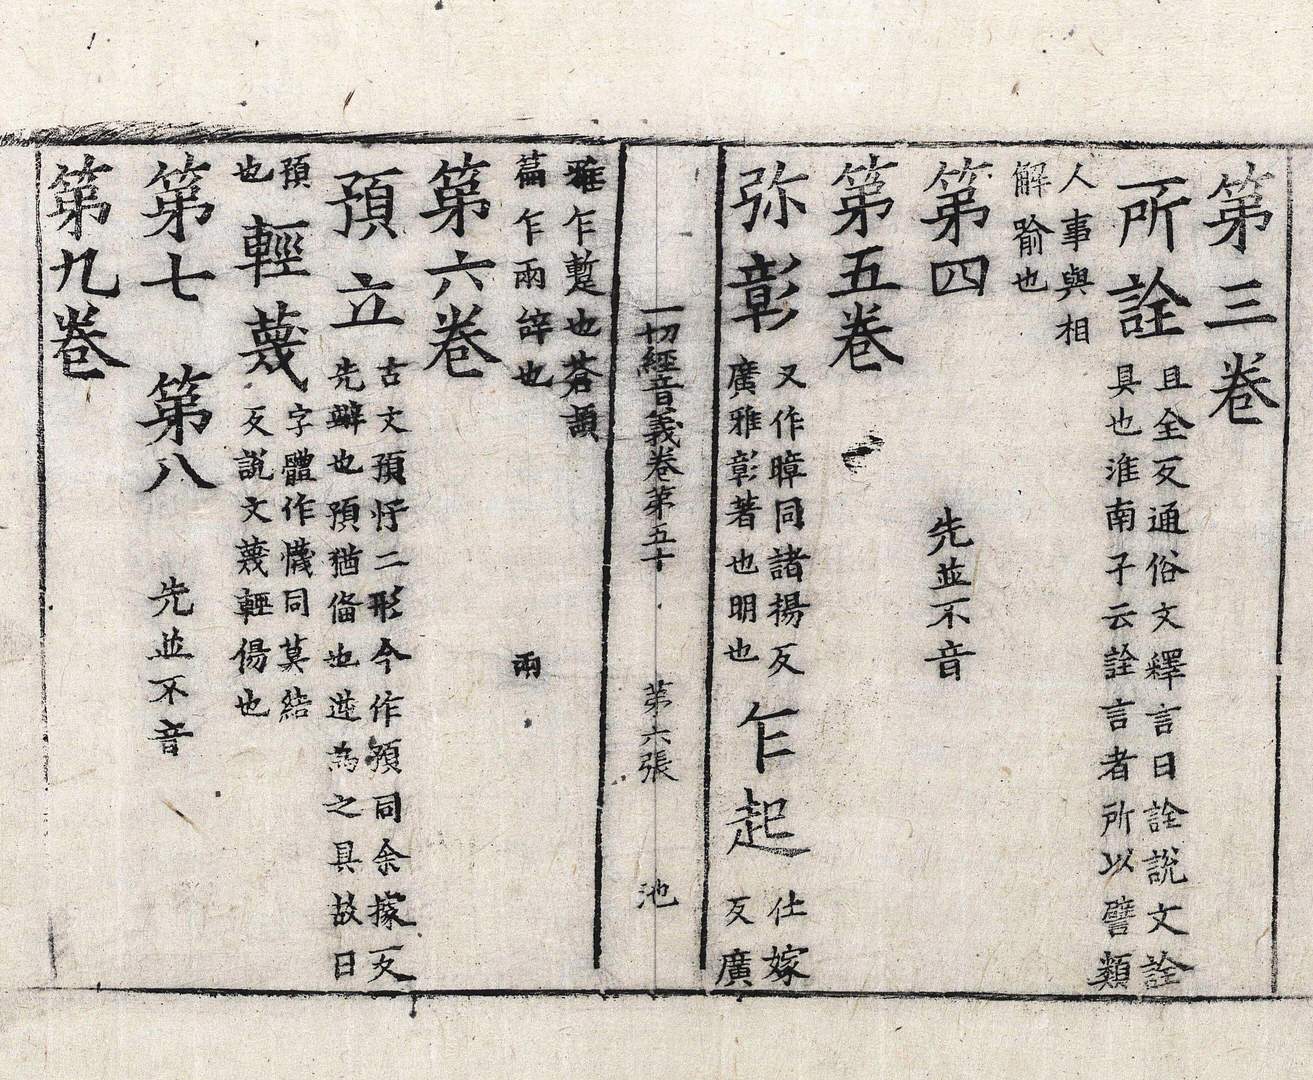 第三卷
所詮
且全反通俗文釋言曰詮說文詮
具也淮南子云詮言者所以譬類
人事與相
解喻也
第四
先並不音
第五卷
弥彰
又作暲同諸揚反
廣雅彰著也明也
乍起
仕嫁
反廣
一切經音義卷第五十
第六張
池
雅乍蹔也蒼頡
篇乍兩辝也
兩
第六卷
預立
古文預忬二形今作預同余據反
先辦也預猶俻也逆為之具故曰
預
也
輕蔑
字體作懱同莫結
反說文蔑輕傷也
第七
第八
先並不音
第九卷